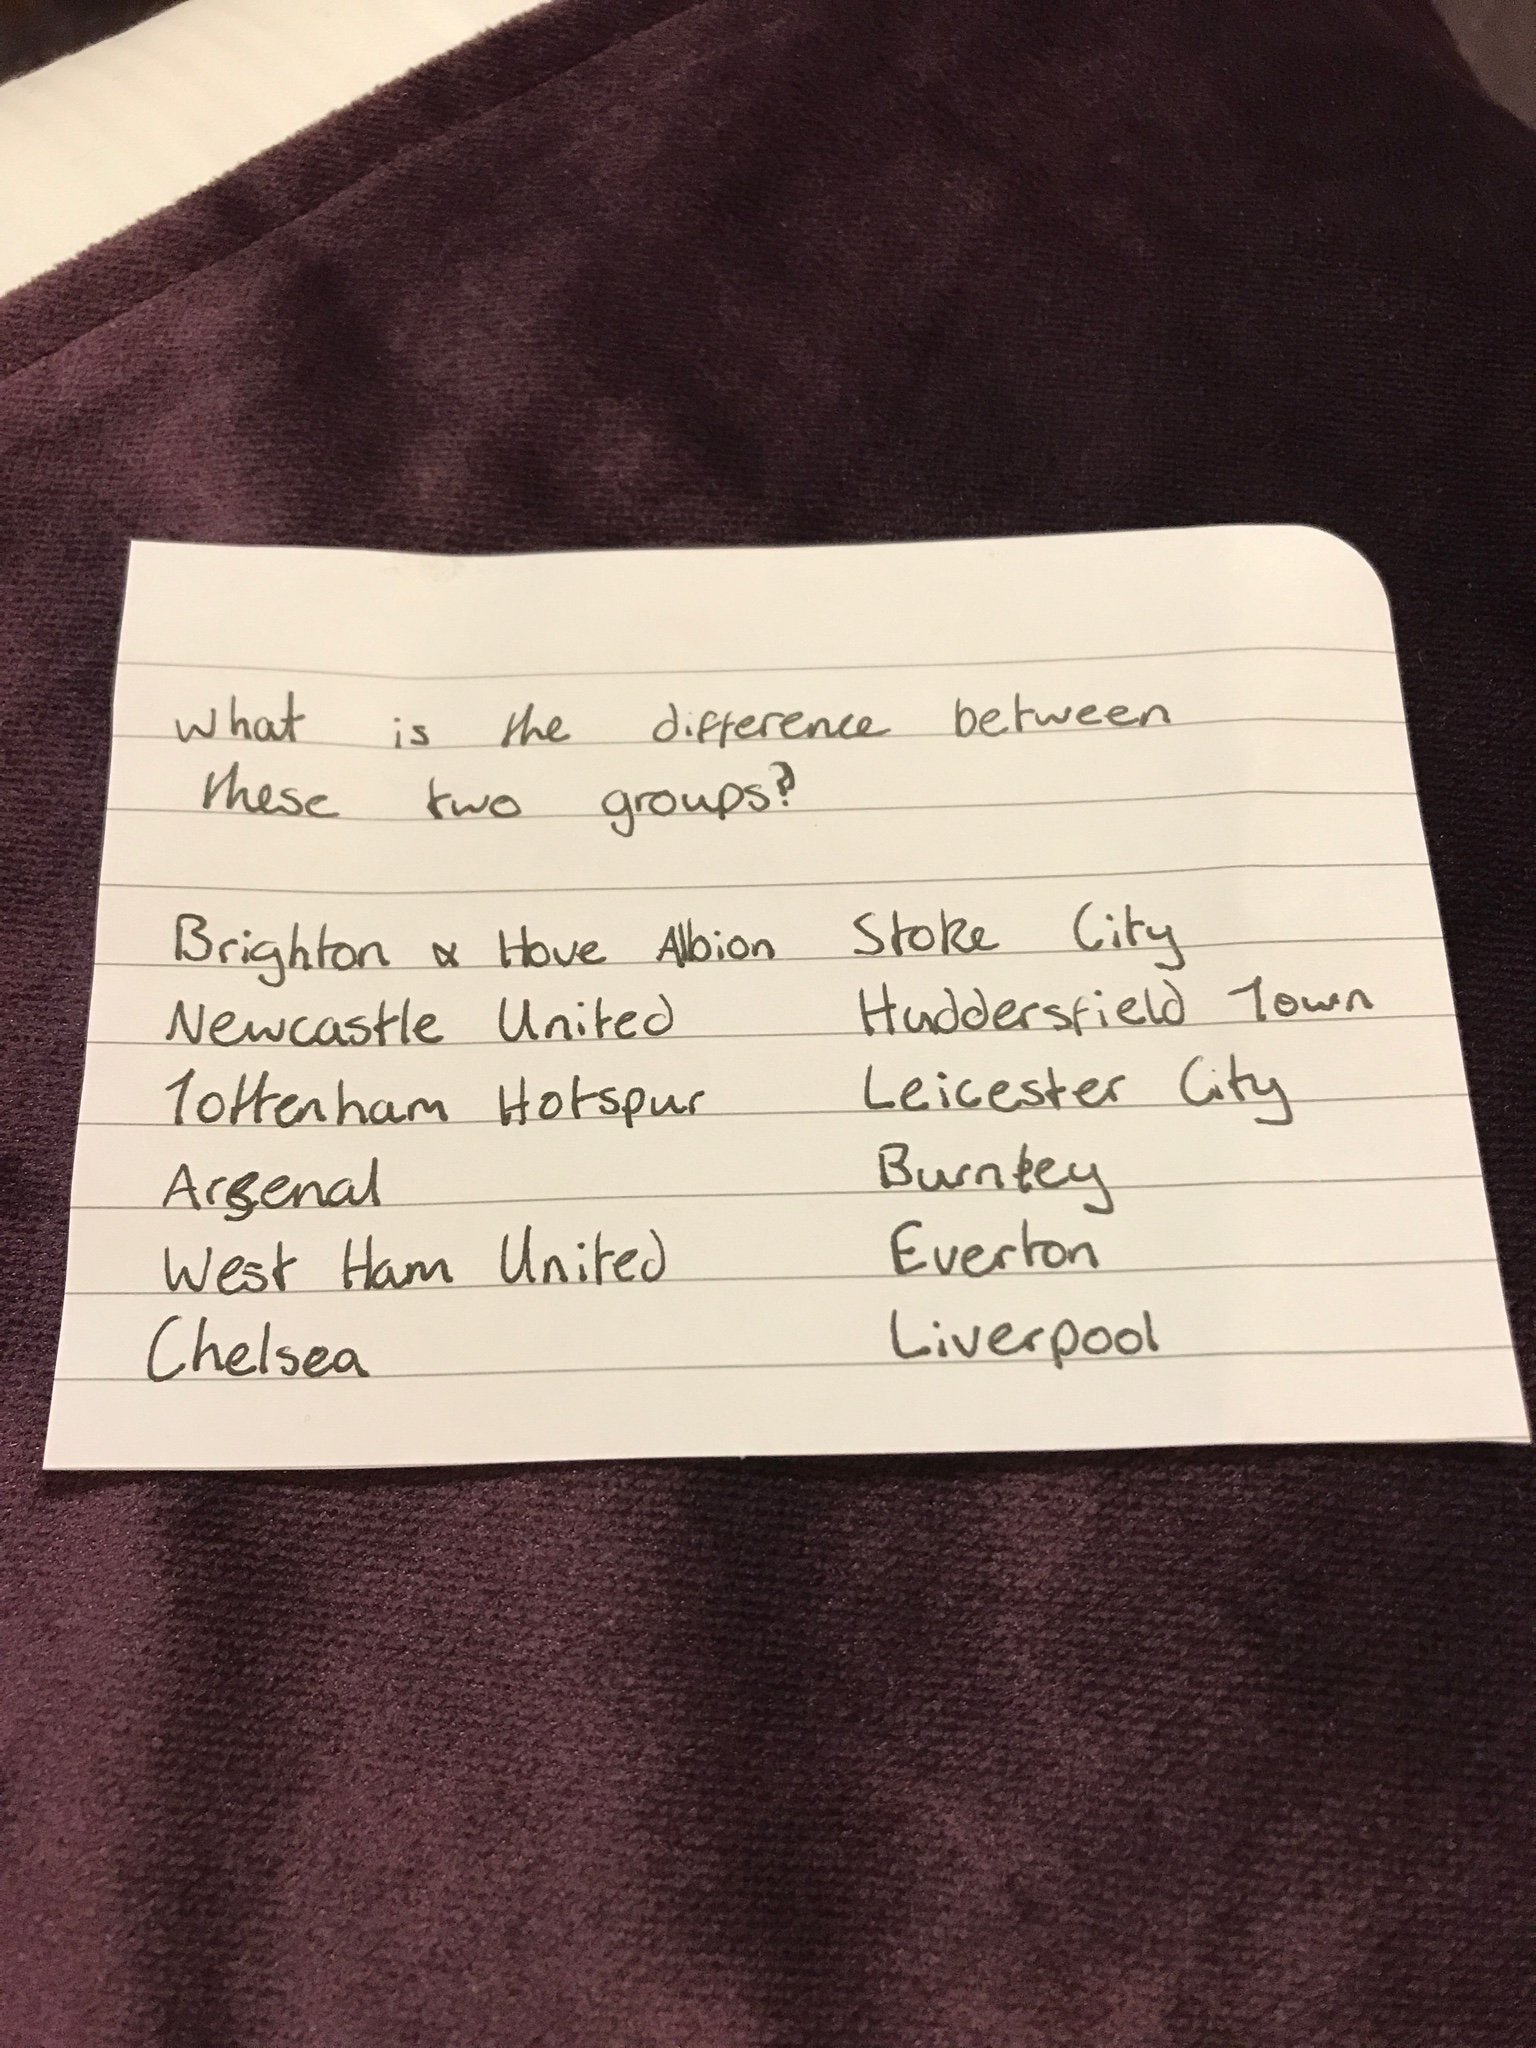 What is the difference between
these two groups?
Brighton & Hove Albion Stoke City
Newcastle United Huddersfield Town
Tottenham Hotspur Leicester City
Arsenal Burnley
West Ham United Everton
Chelsea Liverpool